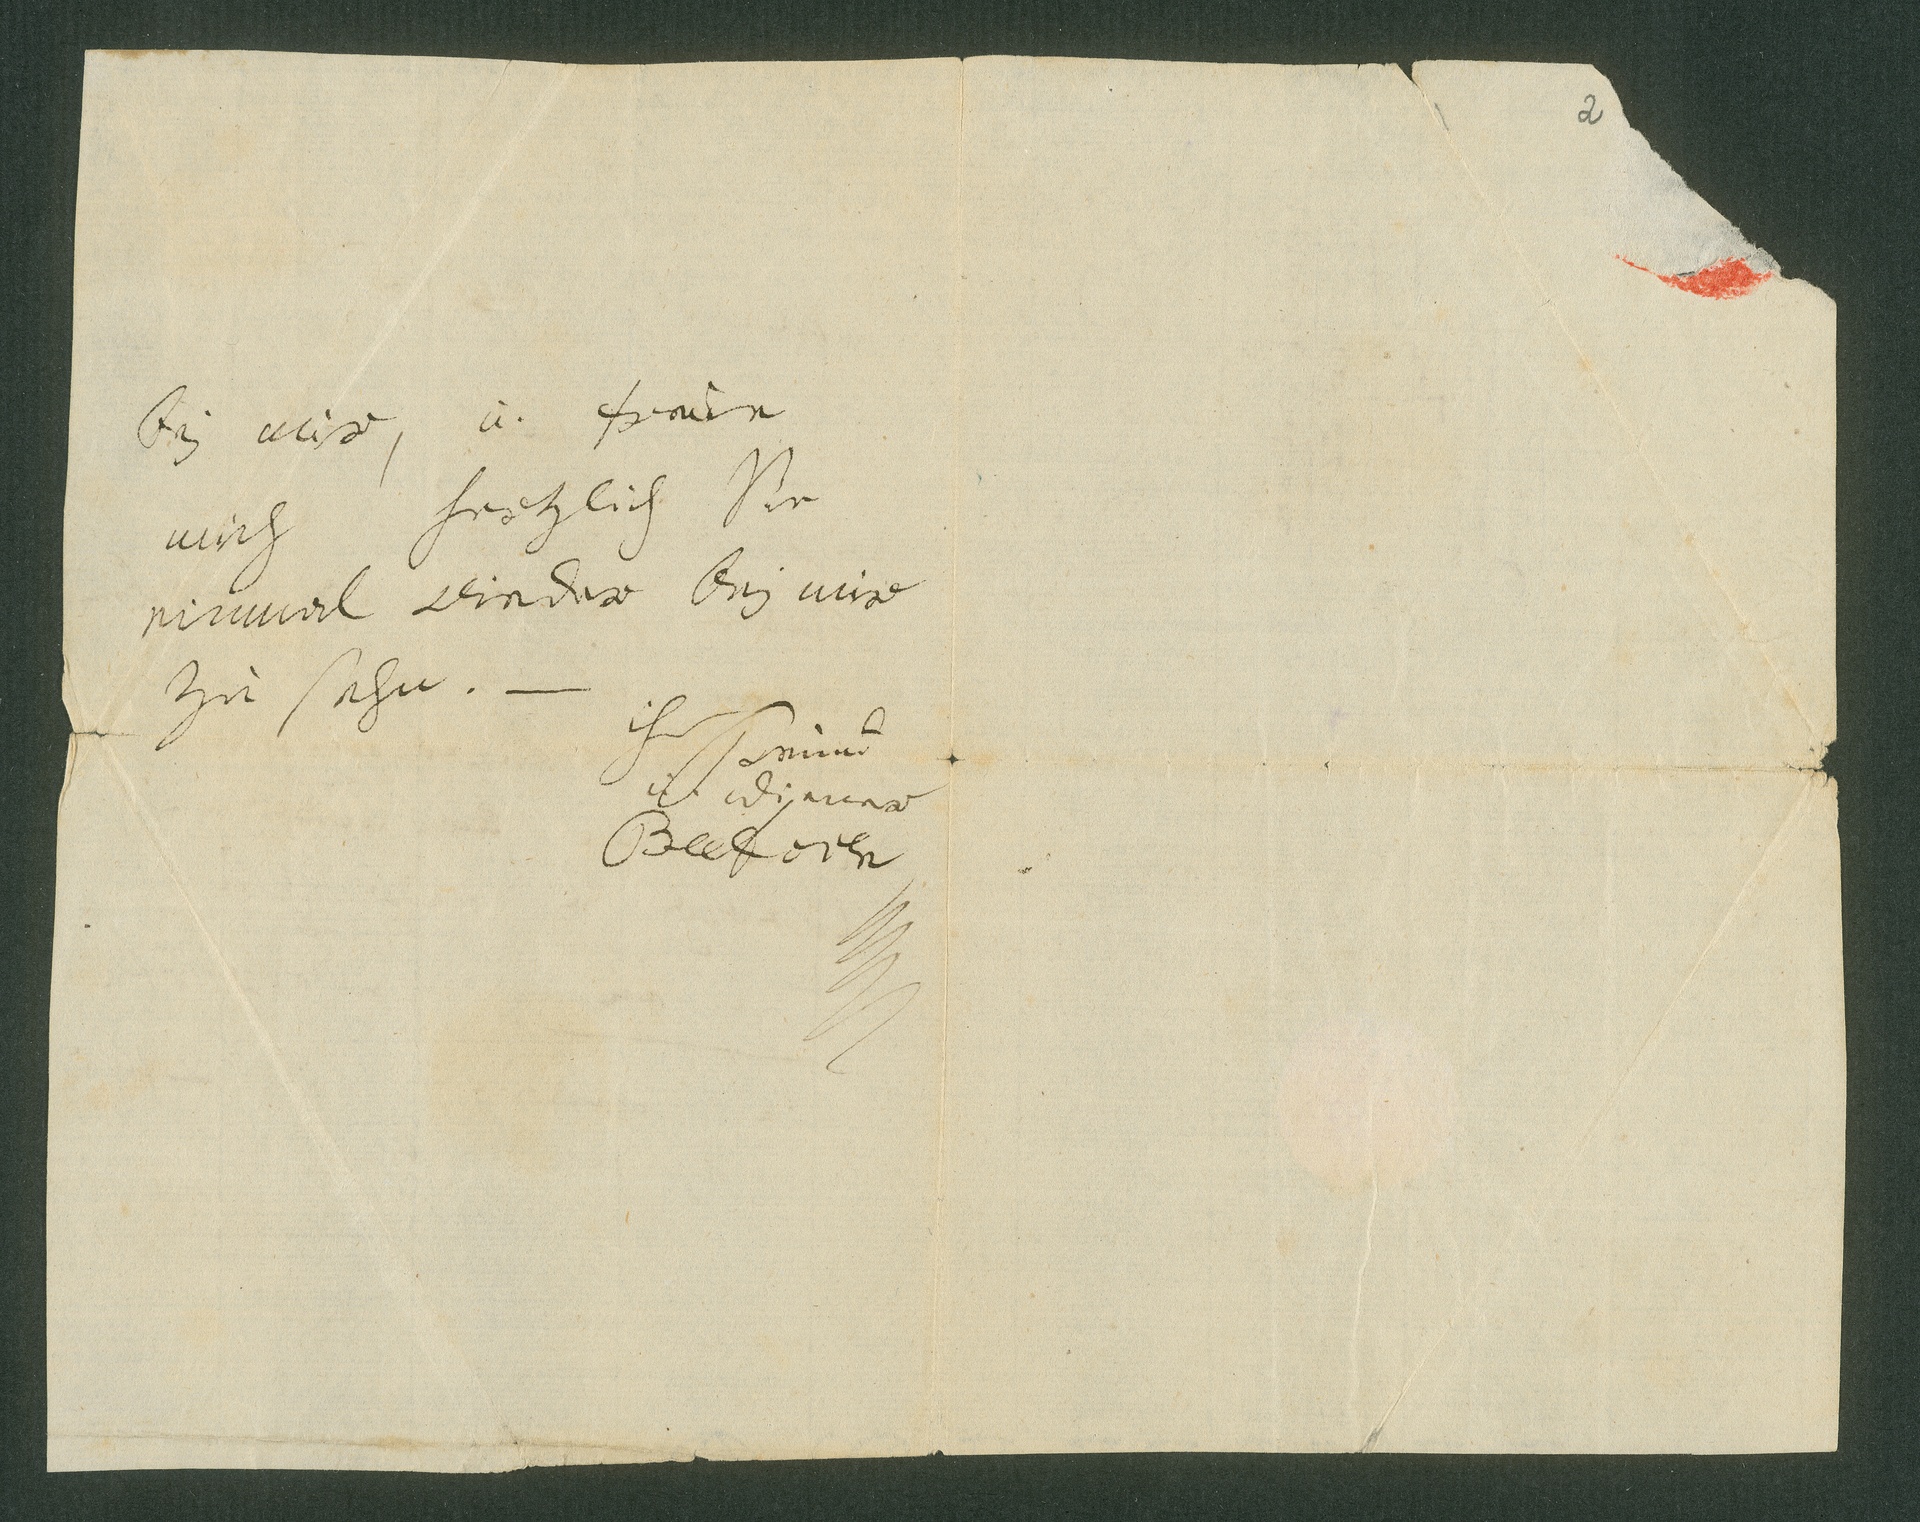 2
bey mir, u. freue
mich herzlich Sie
einmal wieder bey mir
zu sehn. —
ihr Freund
u. diener
Beethowen